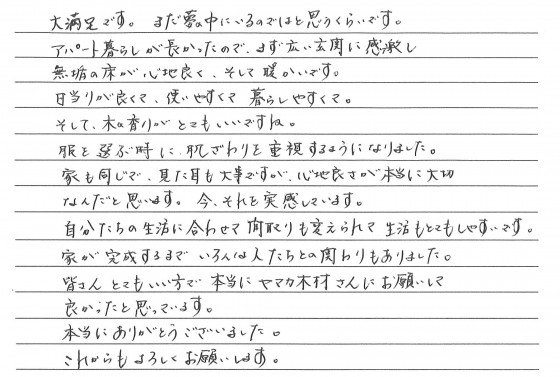 大満足です。 まだ夢の中にいるのではと思うくらいです。
アパート暮らしが長かったので、まず広い玄関に感激し
無垢の床が心地良く、そして暖かいです。
日当りが良くて、使いやすくて 暮らしやすくて。
そして、木の香りが とてもいいですね。
服を選ぶ時に、肌ざわりを重視するようになりました。
家も同じで、見た目も大事ですが、心地良さが本当に大切
なんだと思います。 今、それを実感しています。
自分たちの生活に合わせて間取りも変えられて生活もとてもしやすいです。
家が完成するまで いろんな人たちとの関わりもありました。
皆さん とてもいい方で 本当に ヤマカ木材さんにお願いして
良かったと思っています。
本当にありがとうございました。
これからもよろしくお願いします。